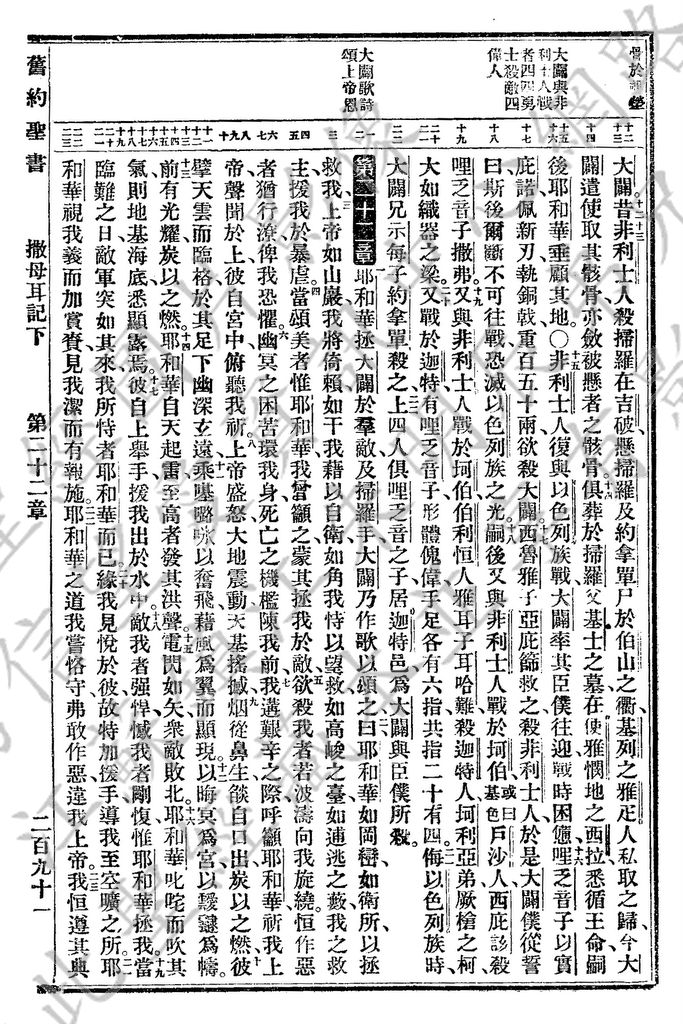 骨於祖塋
大闢與非
利士人戰
者四四勇
士殺敵四
偉人
大闢歌詩
頌上帝恩
大闢昔非利士人殺掃羅在吉破懸掃羅及約拿單尸於伯山之衢基列之雅疋人私取之歸今大
闢遣使取其骸骨亦斂被懸者之骸骨俱葬於掃羅父基士之墓在便雅憫地之西拉悉循王命嗣
後耶和華垂顧其地○非利士人復與以色列族戰大闢率其臣僕往迎戰時困憊哩乏音子以實
庇諾佩新刃執銅戟重百五十兩欲殺大闢西魯雅子亞庇篩救之殺非利士人於是大闢僕從誓
曰斯後爾斷不可往戰恐滅以色列族之光嗣後又與非利士人戰於坷伯或曰基色戶沙人西庇該殺
哩乏音子撒弗又與非利士人戰於坷伯伯利恒人雅耳子耳哈難殺迦特人坷利亞弟厥槍之柯
大如織器之梁又戰於迦特有哩乏音子形體傀偉手足各有六指共指二十有四侮以色列族時
大闢兄示每子約拿單殺之上四人俱哩乏音之子居迦特邑為大闢與臣僕所殺
第二十二章耶和華拯大闢於羣敵及掃羅手大闢乃作歌以頌之曰耶和華如岡巒如衛所以拯
救我上帝如山巖我將倚賴如干我藉以自衛如角我恃以望救如高峻之臺如逋逃之藪我之救
主援我於暴虐當頌美者惟耶和華我曾籲之蒙其拯我於敵欲殺我者若波濤向我旋繞恒作惡
者猶行潦俾我恐懼幽冥之困苦環我身死亡之機檻陳我前我遘艱辛之際呼籲耶和華祈我上
帝聲聞於上彼自宮中俯聽我祈上帝盛怒大地震動天基搖撼烟從鼻生燄自口出炭以之燃彼
擘天雲而臨格於其足下幽深玄遠乘𠼻𡀔咏以奮飛藉風為翼而顯現以晦冥為宮以靉靆為幬
前有光耀炭以之燃耶和華自天起雷至高者發其洪聲電閃如矢眾敵敗北耶和華叱咤而吹其
氣則地基海底悉顯露焉彼自上舉手援我出於水中敵我者强悍憾我者剛愎惟耶和華拯我當
臨難之日敵軍突如其來我所恃者耶和華而已緣我見悅於彼故特加援手導我至空曠之所耶
和華視我義而加賞賚見我潔而有報施耶和華之道我嘗恪守弗敢作惡違我上帝我恒遵其典
舊約聖書 撒母耳記下 第二十二章 二百九十一